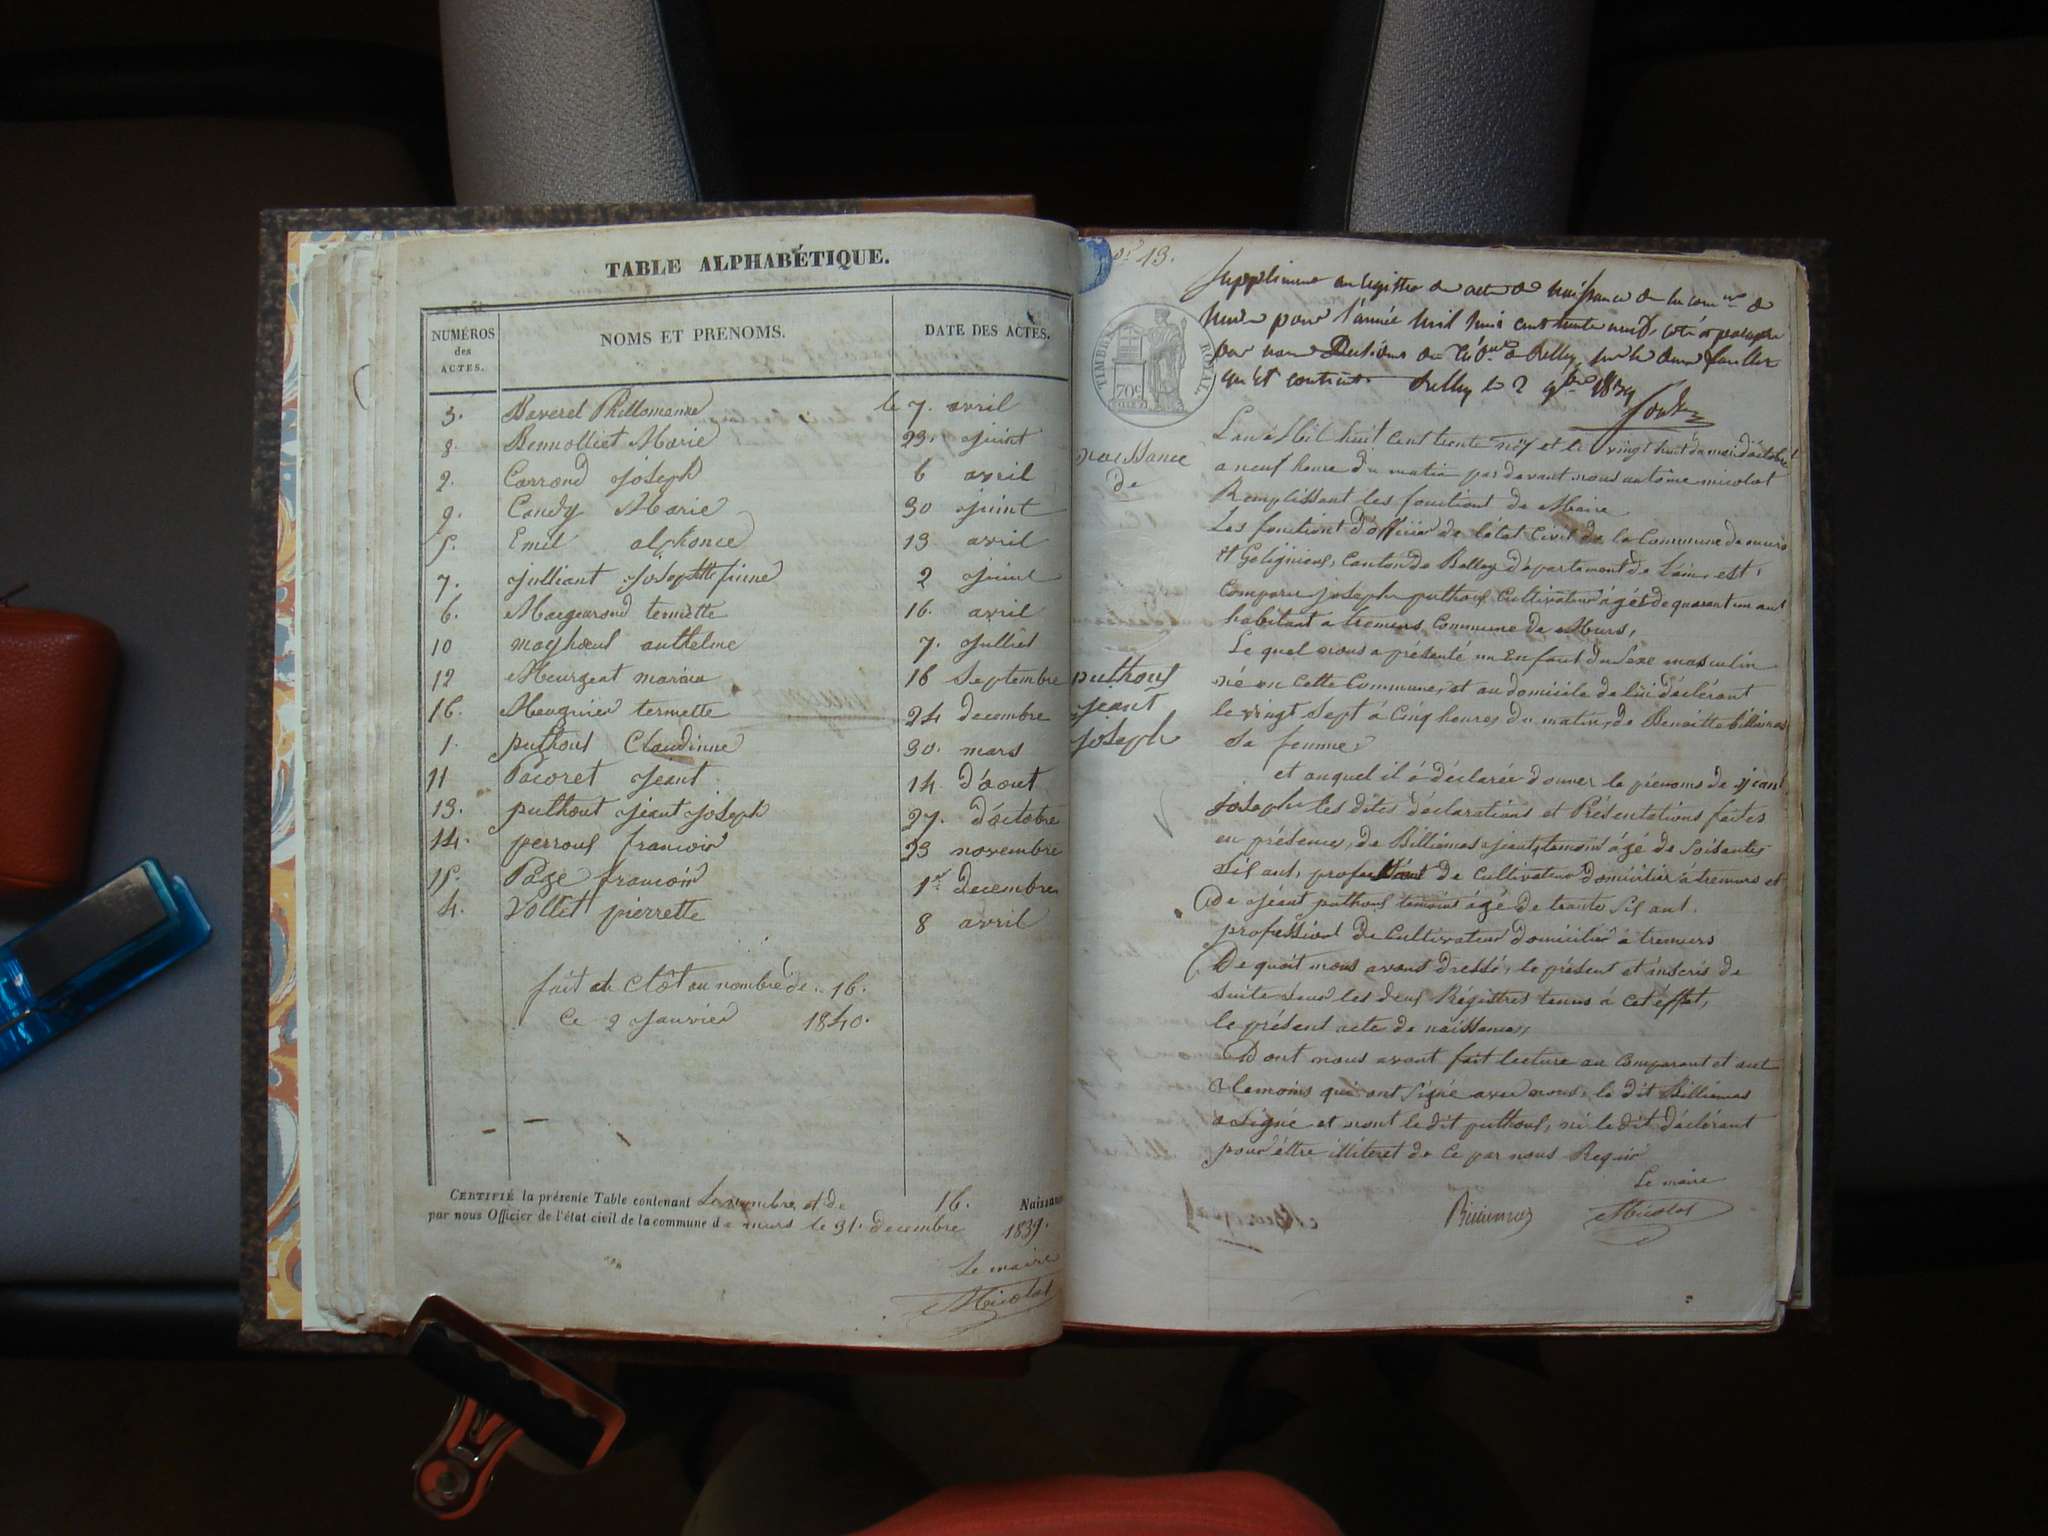 TABLE ALPHABÉTIQUE.
NUMÉROS des ACTES.
NOMS ET PRENOMS.
DATE DES ACTES.
3. Beveret Phillomenne le 7. avril
8. Bennolliet Marie 23. juint
2. Carrond joseph 6 avril
9. Candy Marie 30 juint
5. Emil alphonce 13 avril
7. julliant 2 juint
6. ternette 16. avril
10 anthelme 7. julliet
12 Meurgeat 16 Septembre
16. Meugnier ternette 24 decembre
1. puthout Claudinne 30. mars
11 Pacoret jeant 14. d'áout
13. puthout jeant joseph 27. d'óctobre
14. perrout francoir 23 novembre
15. Page francoir 1er decembre
4. Vollet pierrette 8 avril
fait et Clôt au nombre de. 16.
Ce 2 janvier 1840.
CERTIFIÉ la présente Table contenant Le nombre et de 16. Naissan
par nous Officier de l'état civil de la commune de murs le 31. decembre 1839.
Le maire
Nicolat
nos 13.
Supplément au registre de acte de Naissance de la comune de
Murs pour l'année Mil huit cent trente neuf, coté et paraphé
par nous
qu'il contient Belley le 2 9bre 1839
TIMBRE ROYAL
70c
naissance
de
puthout
jeant
joseph
L'an Mil huit cent trente nëf et le vingt huit du moi d'óctobre
a neuf heure du matin par devant nous nicolat
Remplissant les fonctiont de Maire
Les fonctiont d'officier de l'état Civil de la Commune de murs
et Geligneus, Canton de Belley département de L'ain, est
Comparu joseph puthout Cultivateur âgét de quarant un ant
habitant a tremurs Commune de Murs,
Le quel nous a présenté un Enfant du Sexe masculin
né en cette Commune, et au domicile de lui déclérant
le vingt Sept á Cinq heures du matin, de Benoitte billiemas
Sa femme,
et auquel il á déclarée donner le prénoms de jeant
joseph les dites déclarations et Présentations faites
en présence, de Billiemas jeant, temoin ágé de Soisante
Sis ant, profession de Cultivateur domicilier á tremurs et
De jéant puthout temoint ágé de trante Sis ant.
professiont de Cultivateur domicilier á tremurs
De quoit nous avons dressé, le présent et inscris de
Suite sur les deux Régistres tenus á cet éffet,
le présent acte de naissance,
Dont nous avont fait lecture au Comparant et aut
temoins qui ont Signé avec nous, le dit Billiemas
a Signé et nont le dit puthout, ni le dit déclérant
pour éttre illiteret de Ce par nous Requir
Le maire
Nicolat